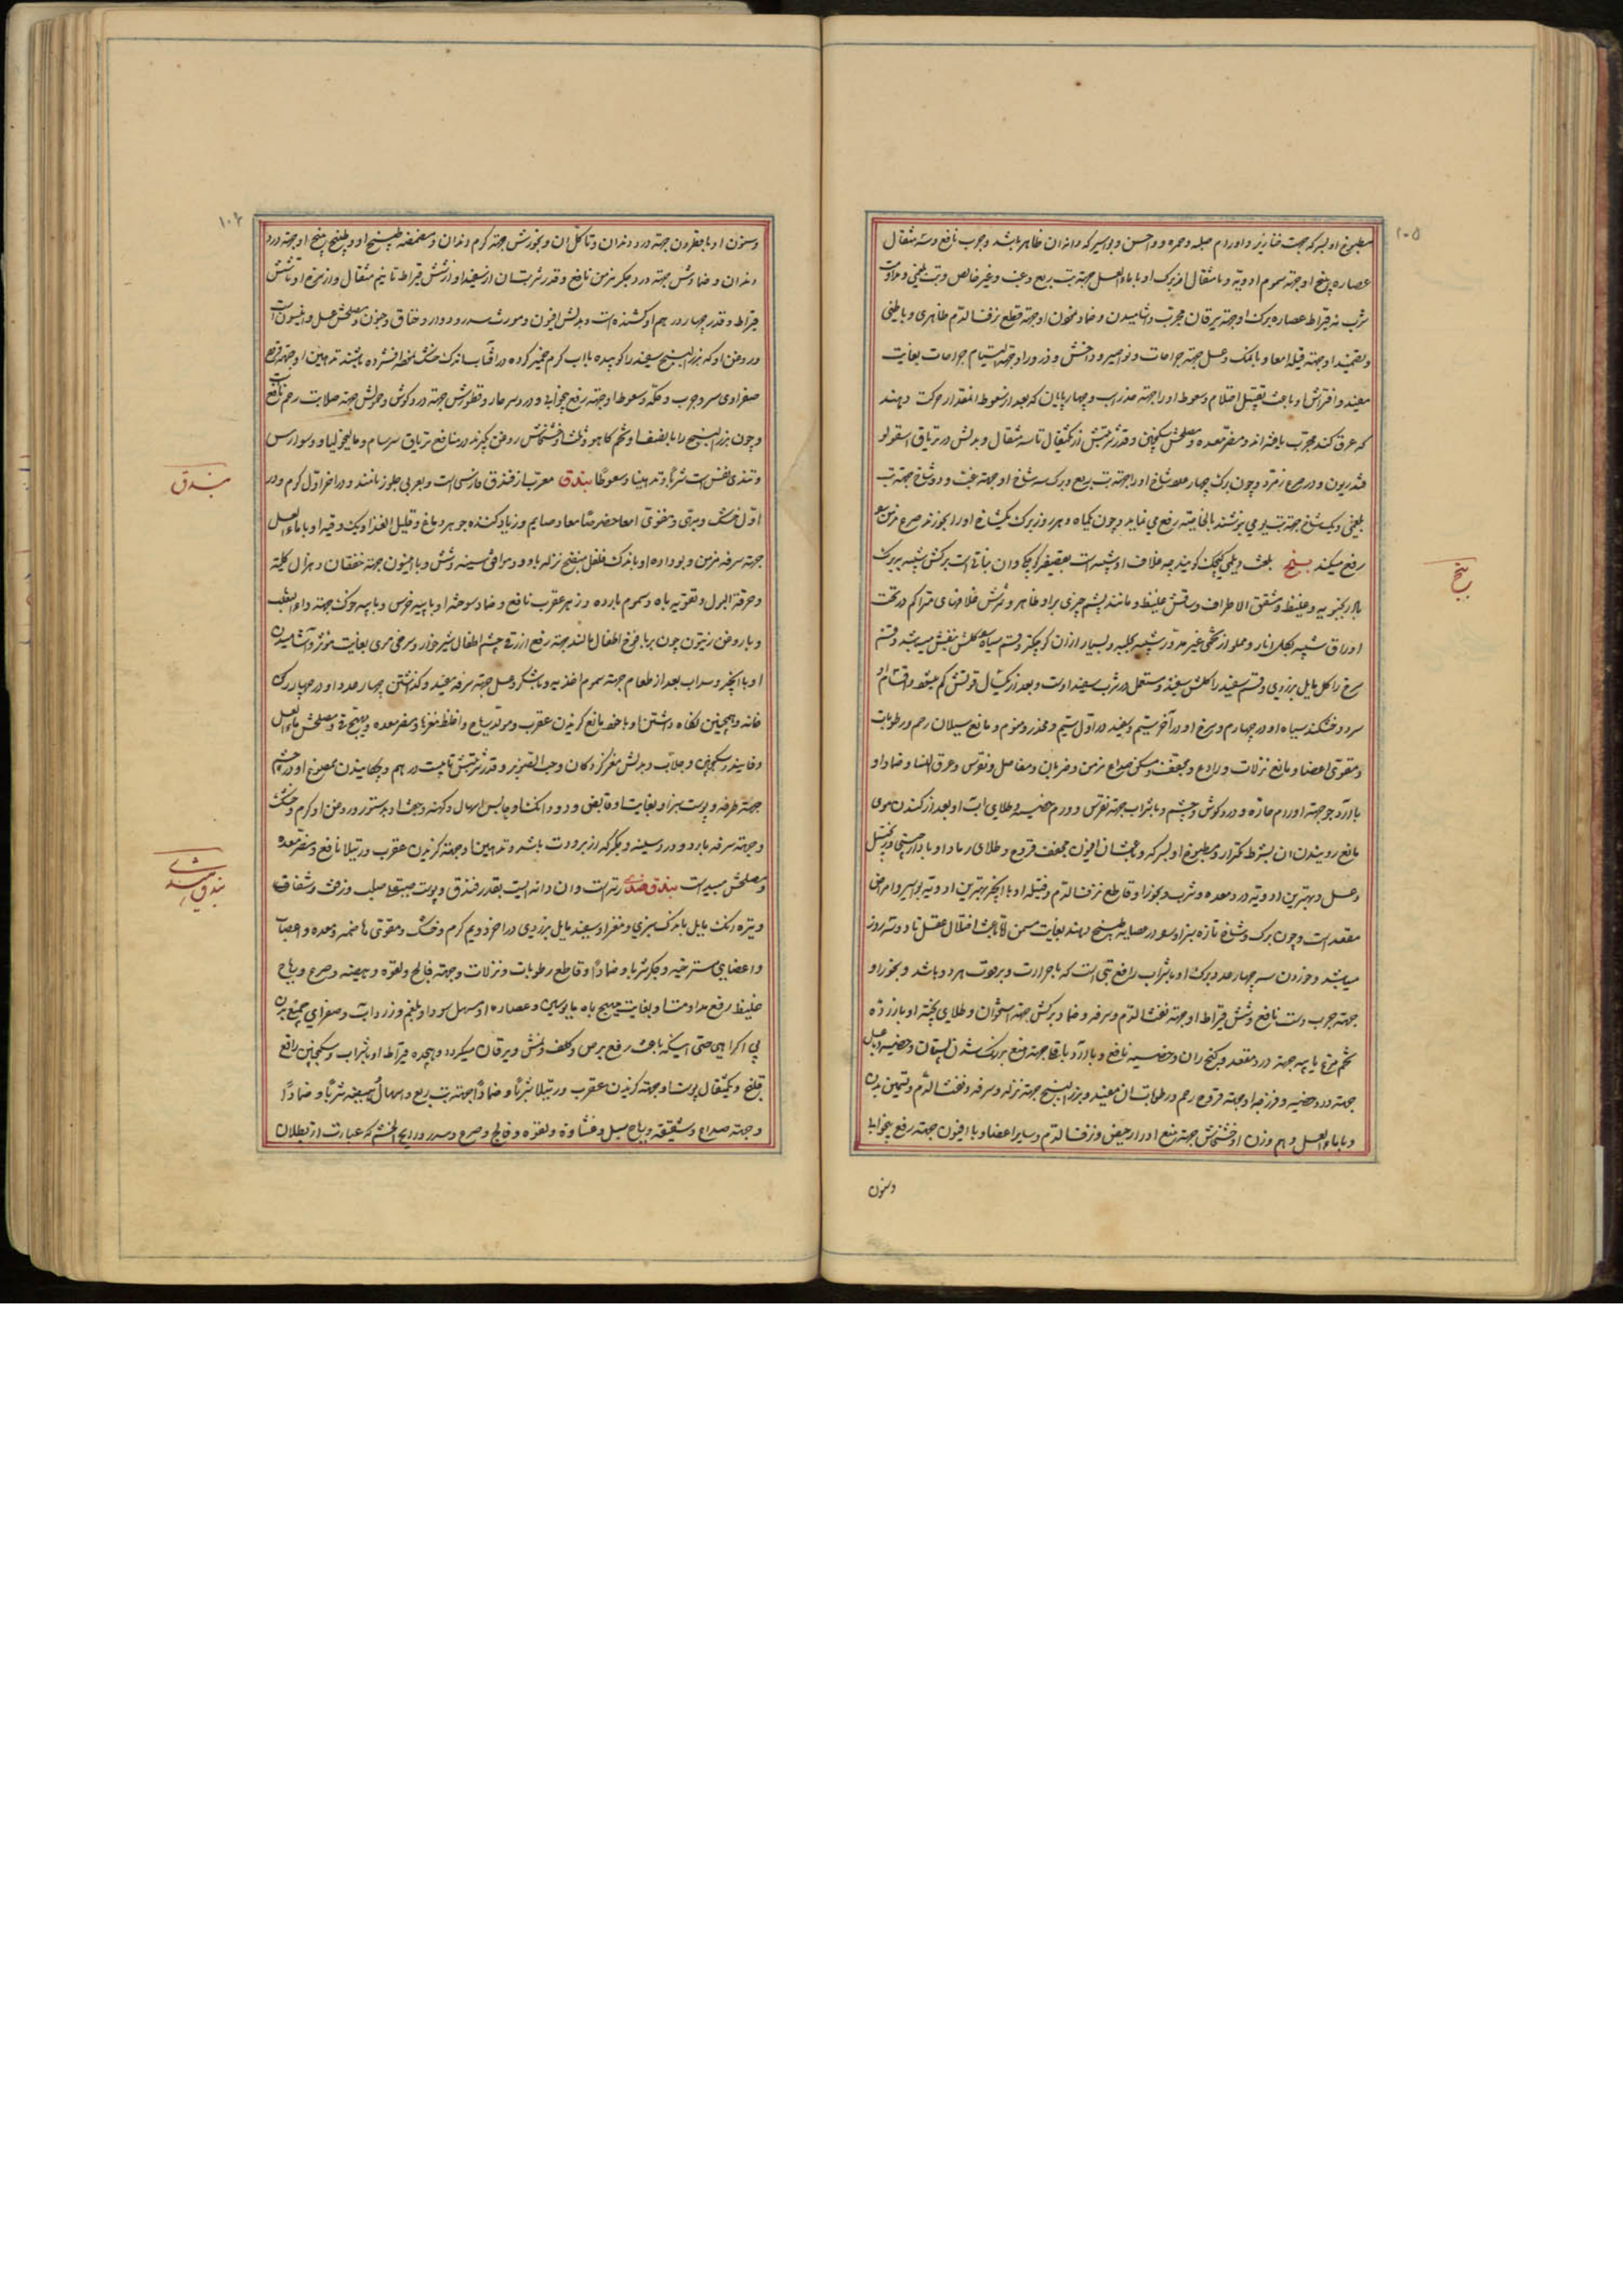 ۱۰۵
مطبوخ او بسرکه جهت خنازیر و اورام صلبه و حمره و داحس و بواسیر که دانه ان ظاهر باشد و جرب نافع و سه مثقال
عصاره بیخ او جهته سموم ادویه و یا مثقال از برک او با ماءالعسل جهته تب ربع و غب و غیر خالص و تب بلغمی و مداومت
شرب نه قیراط عصاره برک او جهته یرقان مجرب و اشامیدن و ضماد مخون او جهته قطع نزف الدم ظاهری و باطنی
و تضمید او جهته قیله امعا و با نمک و عسل جهته جراحات و نواصیر و داخس و ذرور او جهته التیام جراحات بغایت
مفید و افتراش او باعث تقلیل احتلام و سعوط او را جهته
که عرق کند مجرب یافته اند و مضر معده و مصلحش سکنجبین و قدر شربتش از یکمثقال تا سه مثقال و بدلش در تریاق اسقولو
قندریون و در صرع زمرد و چون برک چهار عدد شاخ او را جهته تب ربع و برک سه شاخ او جهته غب و دو شاخ جهته تب
بلغمی و یک شاخ جهته تب یومی بنوشند بالخاصیه رفع می نماید و چون یکماه و هر روز برک یکشاخ او را بخورند صرع مزمن
رفع میکند بنج بلغت دیلمی کیچک کویند چه غلاف او شبیه است بعصفر کوچک و ان نباتی است برکش شبیه ببرک
بادرنجبویه و غلیظ و مشقق الاطراف و ساقش غلیظ و مانند پشم چیزی بر او ظاهر و ثمرش غلافهای متراکم در تحت
اوراق شبیه بکل انار و مملو از تخمی غیر مدور شبیه بحلبه و بسیار از ان کوچکتر و قسم سیاه کلش بنفش میباشد و قسم
سرخ را کل مایل بزردی و قسم سفید را کلش سفید و مستعمل در شرب سفید اوست و بعد از یکسال قوتش کم میشود و اقسام او
سرد و خشکند سیاه او در چهارم و سرخ او در آخر سیم و سفید در اول سیم و مخدر و منوم و مانع سیلان رحم و رطوبات
و مقوی اعضا و مانع نزلات و رادع و مجفف و مسکن صداع مزمن و ضربان و مفاصل و نقرس و عرق النسا و ضماد او
با ارد جو جهته اورام حاره و درد کوش و چشم و با شراب جهته نقرس و ورم خصیه و طلای آب او بعد از کندن موی
مانع روییدن ان بشرط تکرار و مطبوخ او بسرکه و افیون مجفف قروح و طلای رماد او
و عسل و بهترین ادویه درد معده و شرب و بخور او قاطع نزف الدم و فتیله او با انجیر بهترین ادویه بواسیر و امراض
مقعد است و چون برک و شاخ تازه بنج اسود در عصاره طبخ دهند بغایت مسمن و باعث اختلال عقل تا دو سه روز
میباشد و خوردن سه چهار عدد برک او با شراب رافع تبی است که با حرارت و برودت هر دو باشد و بخور او
جهته جرب دست نافع و شش قیراط او جهته نفث الدم و سرفه و ضماد برکش جهته استخوان و طلای پخته او با زرده
تخم مرغ یا پیه جهته درد مقعد و کنج ران و خصیه نافع و با ارد باقلا جهته منع بزرک شدن پستان و خصیه و با عسل
جهته درد خصیه و فرزجه او جهته قروح رحم و رطوبات ان مفید و بزرالبنج جهته نزله و سرفه و نفث الدم و تسمین بدن
و با ماءالعسل و هم وزن او خشخاش جهته منع ادرار حیض و نزف الدم و سایر اعضا و با افیون جهته رفع بیخوابی
وسنون
بنج
۱۰۶
وسنون او با قطران جهته درد دندان و تاکل ان و بخورش جهته کرم دندان و مضمضه طبیخ او و طبیخ بیخ او جهته درد
دندان و ضمادش جهته درد جکر مزمن نافع و قدر شربتان از سفید او از شش قیراط تا نیم مثقال و از سرخ او تا شش
قیراط و قدر چهار درهم او کشنده است و بدلش افیون و مورث سدر و دوار و خناق و جنون و مصلحش عسل و انیسون است
و روغن او که بزرالبنج سفید را کوبیده با اب کرم خمیر کرده در افتاب اندک خشک نموده افشرده باشند تدهین او جهته قروح
صفراوی سر و جرب و حکه و سعوط او جهته رفع بیخوابی و درد سر حار و قطورش جهته درد کوش و حمولش جهته صلابت رحم نافع است
و چون بزرالبنج را با بنصف او تخم کاهو و ثلث او خشخاش روغن بکیرند در منافع تریاق سرسام و مالیخولیا و وسواس
و تندی نفس است شربا و تدهینا و سعوطا بندق معرب از فندق فارسی است و بعربی جلوز نامند و در اخر اول کرم و در
اول خشک و مبهی و مقوی امعا خصوصا معاء صایم و زیاد کننده جوهر دماغ و قلیل الغذا و یک وقیه او با ماءالعسل
جهته سرفه مزمن و بوداده او با اندک فلفل منضج نزله بارد و موافق سینه و شش و با انیسون جهته خفقان و هزال کلیه
و حرقة البول و تقویه باه و سموم بارده و زهر عقرب نافع و ضماد سوخته او با پیه خرس و با پیه خوک جهته داءالثعلب
و با روغن زیتون چون بر یافوخ اطفال مالند جهته رفع ازرقی چشم اطفال شیرخوار و سرخی موی بغایت موثر و آشامیدن
او با انجیر و سداب بعد از طعام جهته سموم اغذیه و با شکر و عسل جهته سرفه مفید و کذاشتن چهار عدد او در چهار رکن
خانه و همچنین نکاه داشتن او با خود مانع کزیدن عقرب و مولد ریاح و اغلظ مغزها و مضر معده و مهیج قی و مصلحش ماءالعسل
و فانیذ و سکنجبین و جلاب و بدلش مغز کردکان و حب الصنوبر و قدر شربتش تا بیست درهم و چکانیدن ممضوغ او در چشم
جهته طرفه و پوست سبز او بغایت قابض و دود انکشا و حابس اسهال کهنه و جفت او بدستور و روغن او کرم و خشک
و جهته سرفه بارد و درد سینه و جکر که از برودت باشد و تدهین او جهته کزیدن عقرب و رتیلا نافع و مضر معده
و مصلحش مسیدست بندق هندی رته است و ان دانه ایست بقدر فندق و پوست صلب و زفت و شفاف
و تیره رنک مایل باندک سبزی و مغز او سفید مایل بزردی در اخر دویم کرم و خشک و مقوی هاضمه و معده و اعصاب
و اعضای مسترخیه و جکر شربا و ضمادا و قاطع رطوبات و نزلات و جهته فالج و لقوه و هیضه و صرع و ریاح
غلیظ رفع مداومت او بغایت مهیج باه مایوسین و عصاره او مسهل سودا و بلغم و زرداب و صفرای جمیع بدن
بی اکراهی حتی اینکه باعث رفع برص و کلف و نمش و یرقان میکردد و هیجده قیراط او با شراب و سکنجبین رافع
قولنج و یکمثقال پوست او جهته کزیدن عقرب و رتیلا شربا و ضمادا جهته تب ربع و اسهال و هیضه شربا و ضمادا
و جهته صداع و شقیقه و ریاح سبل و غشاوه و لقوه و فالج و صرع و سدر و رایح الخشم که عبارت از بطلان
بندق
بندق هندی